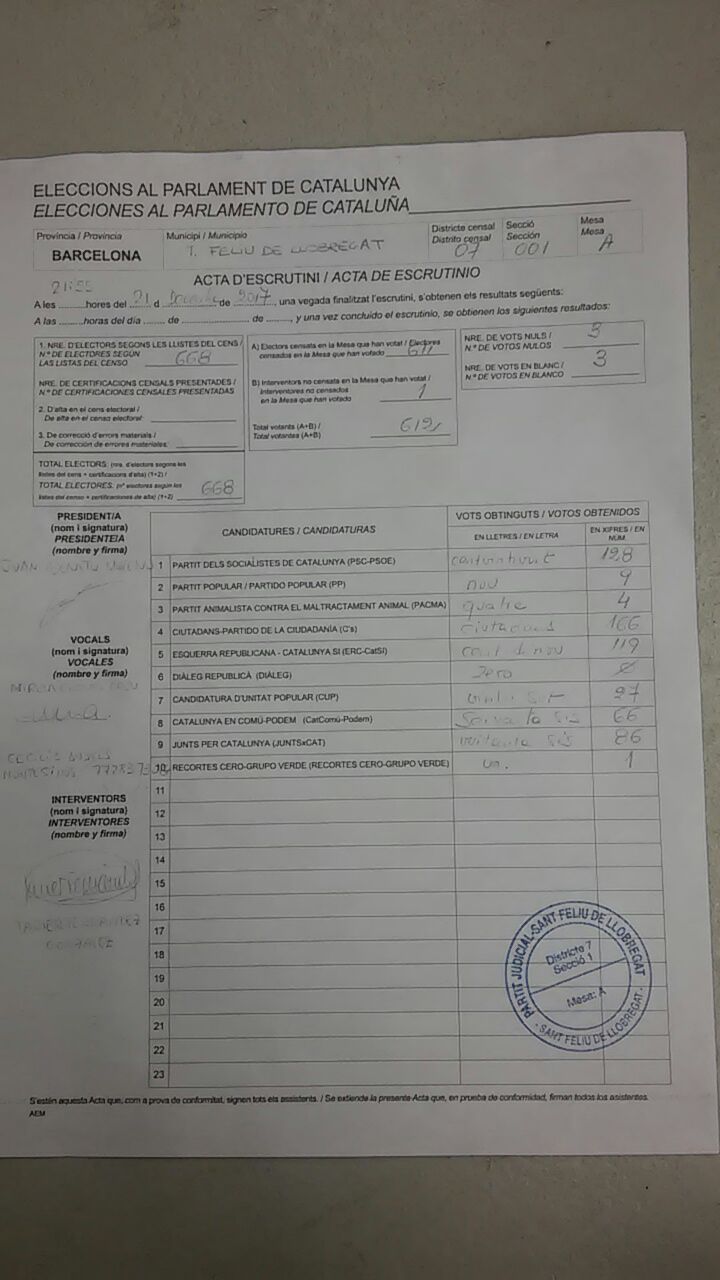 ELECCIONS AL PARLAMENT DE CATALUNYA
ELECCIONES AL PARLAMENTO DE CATALUÑA
Província / Provincia
BARCELONA
Municipi / Municipio
FELIU DE LLOBREGAT
Districte censal
Distrito censal
07
Secció
Sección
001
Mesa
Mesa
A
ACTA D'ESCRUTINI / ACTA DE ESCRUTINIO
21:55
A les ........hores del 21 d ........ de 2017, una vegada finalitzat l'escrutini, s'obtenen els resultats següents:
A las ........horas del día ....... de .................... de ........, y una vez concluido el escrutinio, se obtienen los siguientes resultados:
1. NRE. D'ELECTORS SEGONS LES LLISTES DEL CENS /
N.º DE ELECTORES SEGÚN
LAS LISTAS DEL CENSO 668
NRE. DE CERTIFICACIONS CENSALS PRESENTADES /
N.º DE CERTIFICACIONES CENSALES PRESENTADAS
2. D'alta en el cens electoral /
De alta en el censo electoral:
3. De correcció d'errors materials /
De corrección de errores materiales:
TOTAL ELECTORS: (nre. d'electors segons les
llistes del cens + certificacions d'alta) (1+2) /
TOTAL ELECTORES: (nº electores según las
listas del censo + certificaciones de alta) (1+2) 668
A) Electors censats en la Mesa que han votat / Electores
censados en la Mesa que han votado 611
B) Interventors no censats en la Mesa que han votat /
Interventores no censados
en la Mesa que han votado 1
Total votants (A+B) /
Total votantes (A+B)
NRE. DE VOTS NULS /
N.º DE VOTOS NULOS 3
NRE. DE VOTS EN BLANC /
N.º DE VOTOS EN BLANCO 3
PRESIDENT/A
(nom i signatura)
PRESIDENTE/A
(nombre y firma)
JUAN BENITO
VOCALS
(nom i signatura)
VOCALES
(nombre y firma)
INTERVENTORS
(nom i signatura)
INTERVENTORES
(nombre y firma)
CANDIDATURES / CANDIDATURAS
VOTS OBTINGUTS / VOTOS OBTENIDOS
EN LLETRES / EN LETRA
EN XIFRES / EN NÚM.
1 PARTIT DELS SOCIALISTES DE CATALUNYA (PSC-PSOE) 128
2 PARTIT POPULAR / PARTIDO POPULAR (PP) nou 9
3 PARTIT ANIMALISTA CONTRA EL MALTRACTAMENT ANIMAL (PACMA) quatre 4
4 CIUTADANS-PARTIDO DE LA CIUDADANÍA (C's) 166
5 ESQUERRA REPUBLICANA - CATALUNYA SÍ (ERC-CatSí) 119
6 DIÀLEG REPUBLICÀ (DIÀLEG) Zero Ø
7 CANDIDATURA D'UNITAT POPULAR (CUP) 27
8 CATALUNYA EN COMÚ-PODEM (CatComú-Podem) 66
9 JUNTS PER CATALUNYA (JUNTSxCAT) 86
10 RECORTES CERO-GRUPO VERDE (RECORTES CERO-GRUPO VERDE) un. 1
11
12
13
14
15
16
17
18
19
20
21
22
23
PARTIT JUDICIAL-SANT FELIU DE LLOBREGAT
Districte 7
Secció 1
Mesa: A
- SANT FELIU DE LLOBREGAT -
S'estén aquesta Acta que, com a prova de conformitat, signen tots els assistents. / Se extiende la presente Acta que, en prueba de conformidad, firman todos los asistentes.
AEM